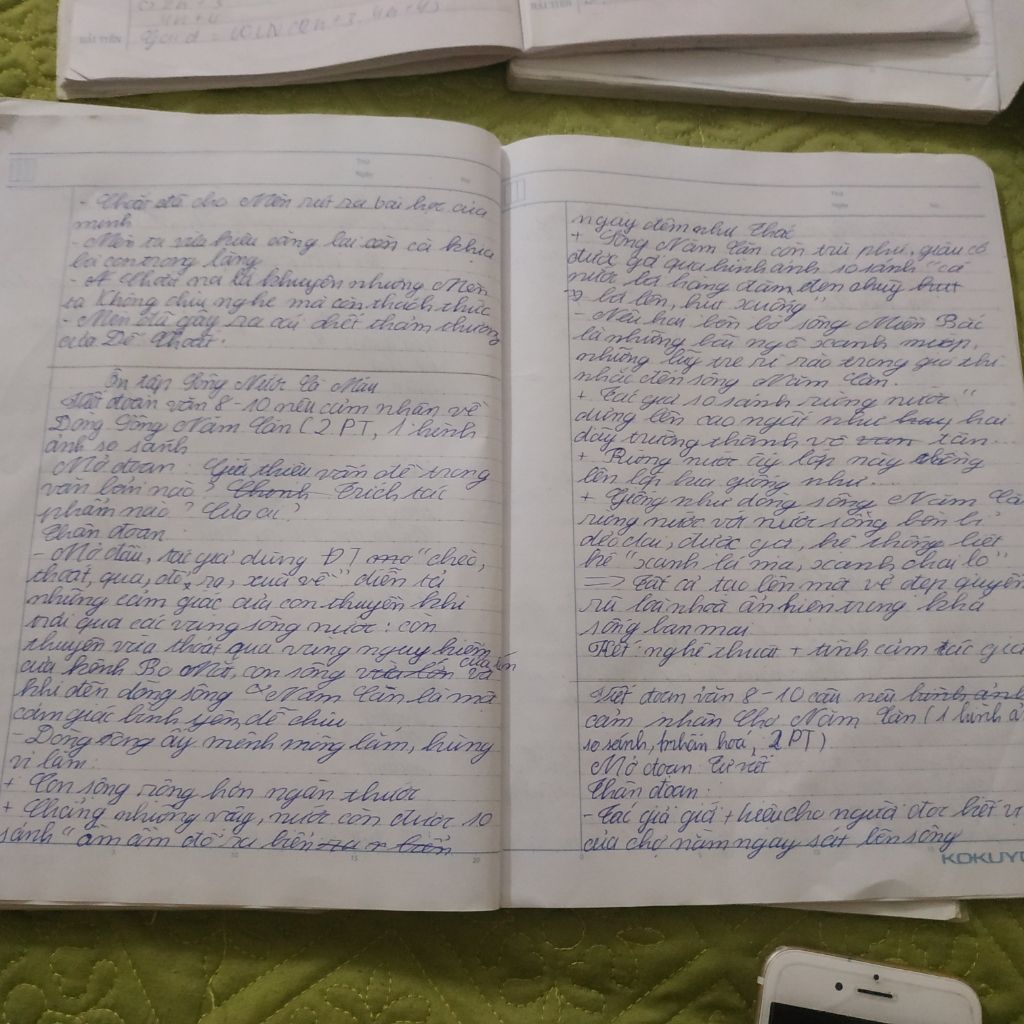 2n + 3
4n + 4
Gọi d = ƯCLN (2n + 3, 4n + 4)
- Choắt đã cho Mèn rút ra bài học của
mình
- Mèn ta vừa kiêu căng lại còn cà khịa
bà con trong làng
- Choắt khuyên nhưng Mèn
ta không chịu nghe mà còn thách thức
- Mèn đã gây ra cái chết thảm thương
của Dế Choắt.
Ôn tập Sông Nước Cà Mau
Viết đoạn văn 8-10 nêu cảm nhận về
Dòng Sông Năm Căn (2 PT, 1 hình
ảnh so sánh
Mở đoạn: Giới thiệu vấn đề trong
văn bản nào? Trích tác
phẩm nào? Của ai?
Thân đoạn:
- Mở đầu, tác giả dùng ĐT "chèo,
thoát, qua, đổ, ra, xuôi về" diễn tả
những cảm giác của con thuyền khi
trải qua các vùng sông nước: con
thuyền vừa thoát qua vùng nguy hiểm
của kênh Bọ Mắt, con sông cửa lớn và
khi đến dòng sông Năm Căn là một
cảm giác bình yên, dễ chịu
- Dòng sông ấy mênh mông lắm, hùng
vĩ lắm:
+ Con sông rộng hơn ngàn thước
+ Chẳng những vậy, nước còn được so
sánh "ầm ầm đổ ra biển
ngày đêm như thác
+ Sông Năm Căn còn trù phú, giàu có
được gợi qua hình ảnh so sánh "cá
nước bơi hàng đàn đen
bơi lên, hụt xuống"
- Nếu hai bên bờ sông Miền Bắc
là những bãi ngô xanh mướp,
những lũy tre rì rào trong gió thì
nhắc đến sông Năm Căn.
+ Tác giả so sánh rừng nước "
dựng lên cao ngất như hai
dãy trường thành vô tận...
+ Rừng nước ấy lớp này chồng
lên lớp kia giống như...
+ Giống như dòng sông Năm Căn
rừng nước với nước sống bền bỉ
dẻo dai, được gợi, hệ thống liệt
kê "xanh lá mạ, xanh chai lọ"
=> Tất cả tạo lên một vẻ đẹp quyến
rũ lòa nhòa ẩn hiện trong khói
sóng ban mai
Kết: nghệ thuật + tình cảm tác giả
Viết đoạn văn 8-10 câu nêu
cảm nhận Chợ Năm Căn (1 hình ả
so sánh, nhân hoá, 2 PT)
Mở đoạn: Tự viết
Thân đoạn:
- Tác giả giới thiệu cho người đọc biết vị
của chợ nằm ngay sát bên sông
KOKUYO